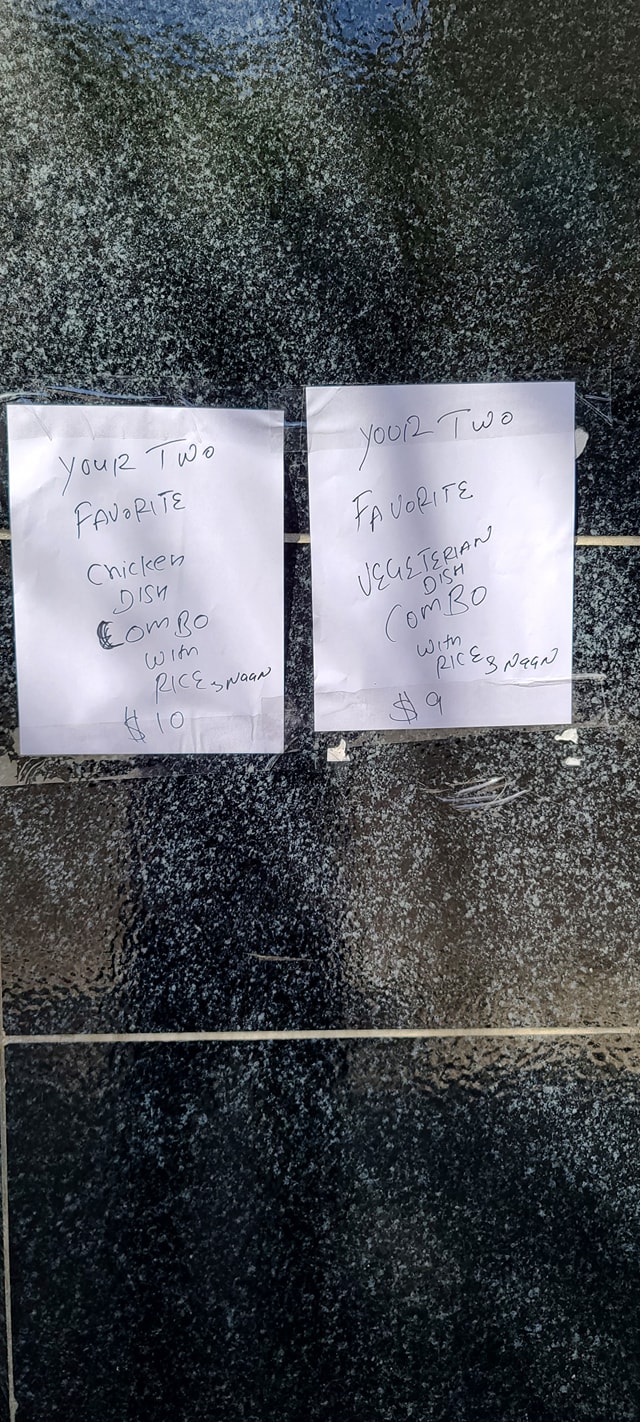 YOUR TWO
FAVORITE
Chicken
DISH
COMBO
with
RICE & NAAN
$10
YOUR TWO
FAVORITE
VEGETERIAN
DISH
COMBO
with
RICE & NAAN
$9